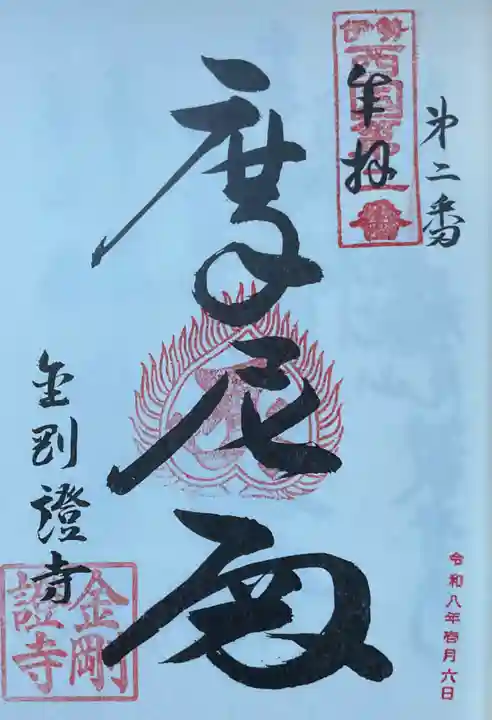 第二番
奉拝
伊勢西国第二番
摩尼殿
金剛證寺
金剛
證寺
令和八年壱月六日